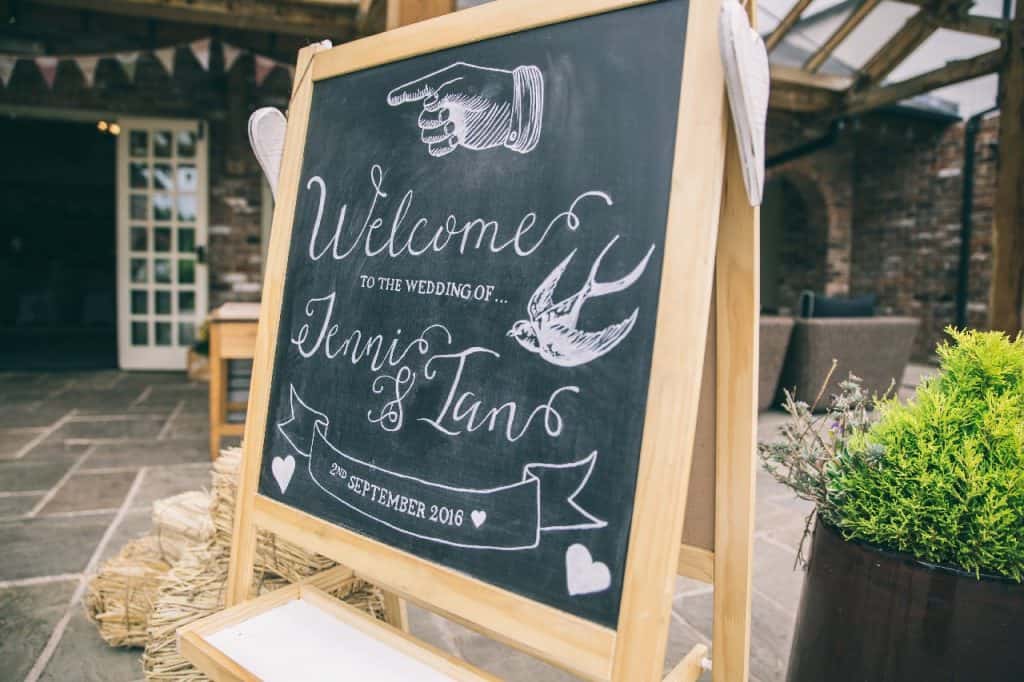 Welcome
TO THE WEDDING OF...
Jenni
& Ian
2ND SEPTEMBER 2016